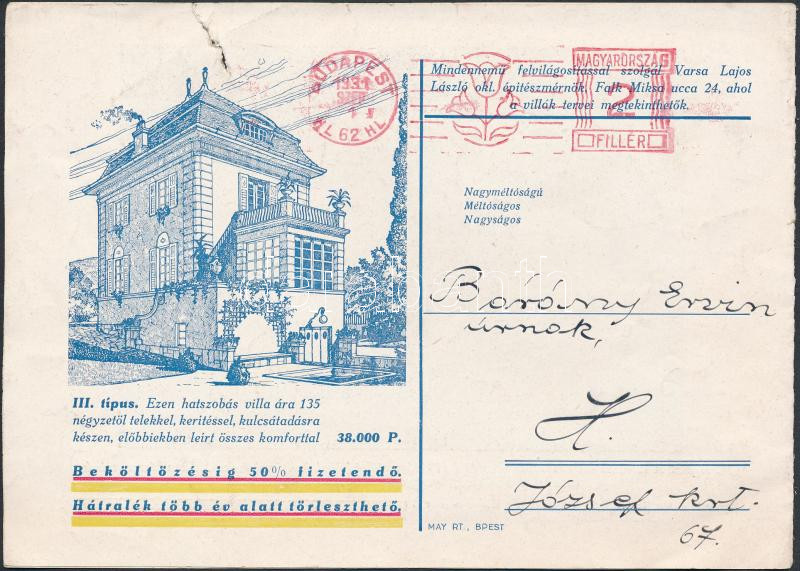 BUDAPEST
1931
SZEP.
62 HL
MAGYARORSZÁG
2
FILLÉR
Mindennemű felvilágosítással szolgál Varsa Lajos
László okl. építészmérnök. Falk Miksa ucca 24, ahol
a villák tervei megtekinthetők.
Nagyméltóságú
Méltóságos
Nagyságos
Bárány Ervin
úrnak,
H.
József krt.
67.
III. típus. Ezen hatszobás villa ára 135
négyzetöl telekkel, keritéssel, kulcsátadásra
készen, előbbiekben leírt összes komforttal 38.000 P.
Beköltözésig 50% fizetendő.
Hátralék több év alatt törleszthető.
MAY RT., BPEST